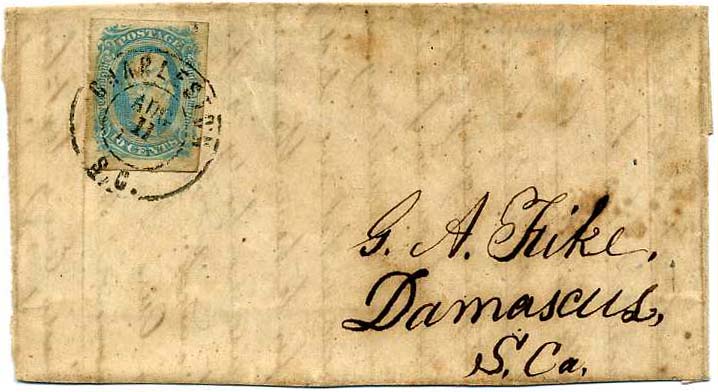 POSTAGE
CHARLESTON
AUG
11
S.C.
CENTS
G. A. Fike,
Damascus,
S. Ca.